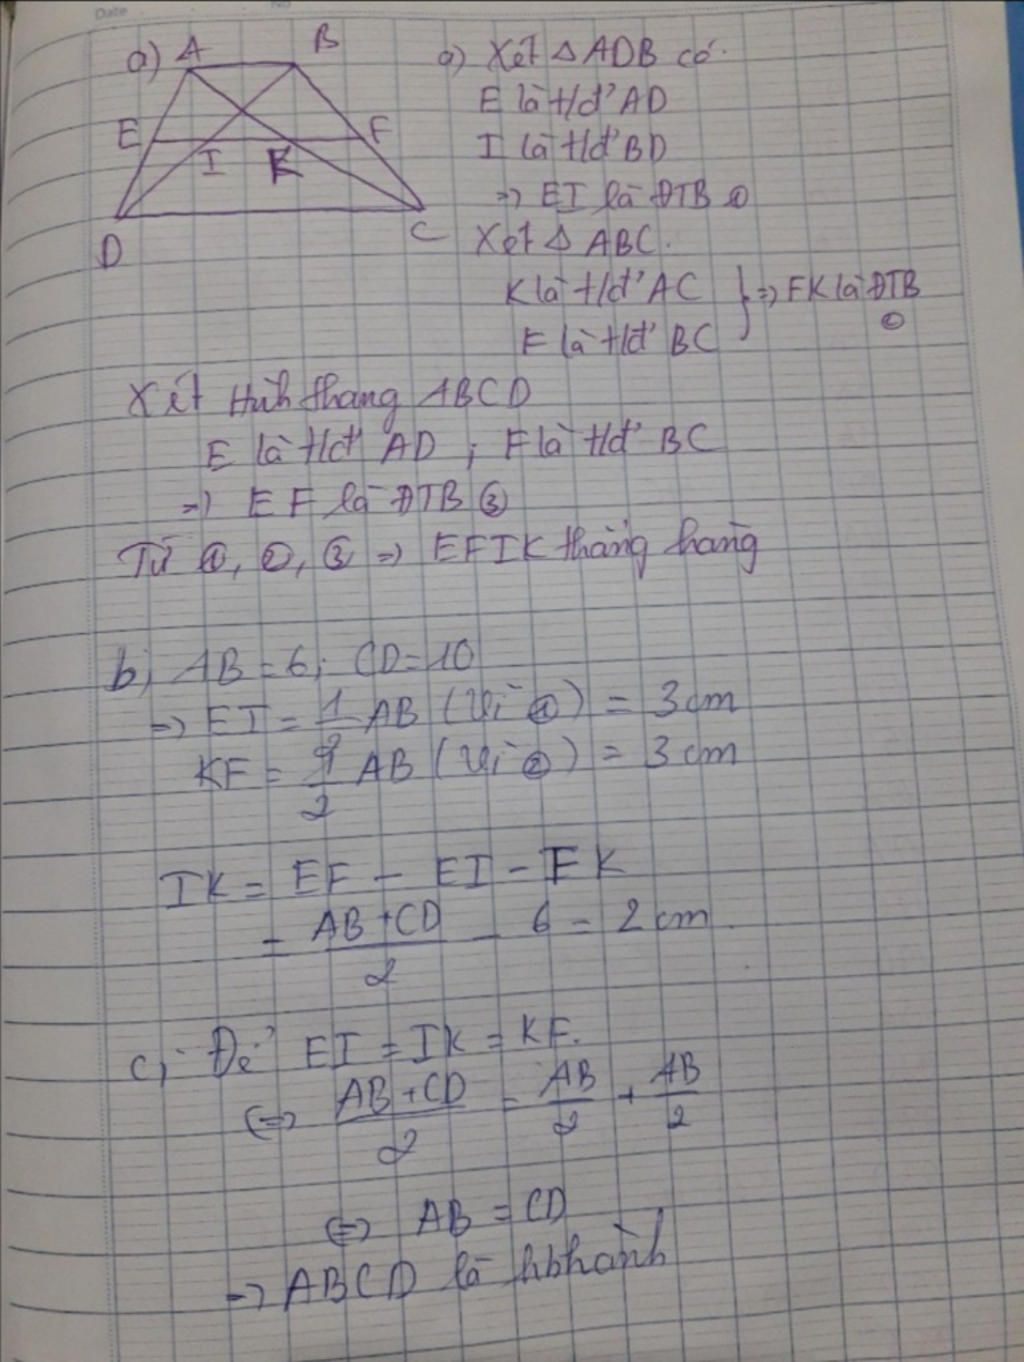 Date
No
a) A B
E F
I K
D C
a) Xét Δ ADB có.
E là t/đ' AD
I là t/đ' BD
=> EI là ĐTB ①
Xét Δ ABC.
K là t/đ' AC } => FK là ĐTB
F là t/đ' BC ②
Xét Hình thang ABCD
E là t/đ' AD ; F là t/đ' BC
=> EF là ĐTB ③
Từ ①, ②, ③ => EFIK thẳng hàng
b, AB = 6; CD = 10
=> EI = 1/2 AB (Vì ①) = 3cm
KF = 1/2 AB (Vì ②) = 3cm
IK = EF - EI - FK
= (AB + CD)/2 - 6 = 2cm
c, Để EI = IK = KF.
<=> (AB + CD)/2 = AB/2 + AB/2
<=> AB = CD
=> ABCD là hbhành